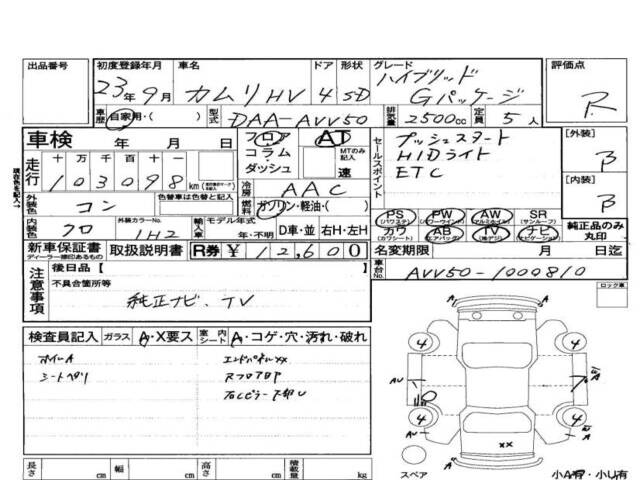 出品番号 初度登録年月 車名 ドア 形状 グレード 評価点
23年9月 カムリHV 4 SD ハイブリッド Gパッケージ R
車歴 自家用・( ) 型式 DAA-AVV50 排気量 2500cc 定員 5人
車検 年 月 日 フロア AT セールスポイント プッシュスタート [外装]
コラム・ MTのみ記入 HIDライト B
ダッシュ 速 ETC
走行 十 万 千 百 十 一
103098 km 冷房 AAC [内装]
外装色 コン 色替車は色替と記入 燃料 ガソリン・軽油・( ) B
現在色を記入→
PS (パワステ) PW (パワーウインド) AW (アルミホイル) SR (サンルーフ)
内装色 クロ 外装カラーNo. 1H2 輸入車 モデル年式 年・不明 D車・並 右H・左H カワ (カワシート) AB (エアバッグ) TV (地デジ) ナビ (ナビゲーション) 純正品のみ丸印
新車保証書 ディーラー捺印あるもの 取扱説明書 R券 ¥12,600 名変期限 月 日迄
注意事項 後日品【 車台No. AVV50-1000810
不具合箇所等 ロック車
純正ナビ、TV
検査員記入 ガラス A・X要ス 室内シート A・コゲ・穴・汚れ・破れ
ホイルA エンドパネルXX
シートヘタリ
4 4
AU A
4 4
AU A
XX
長さ cm 幅 cm 高さ cm 積載量 kg スペア 小A有・小U有